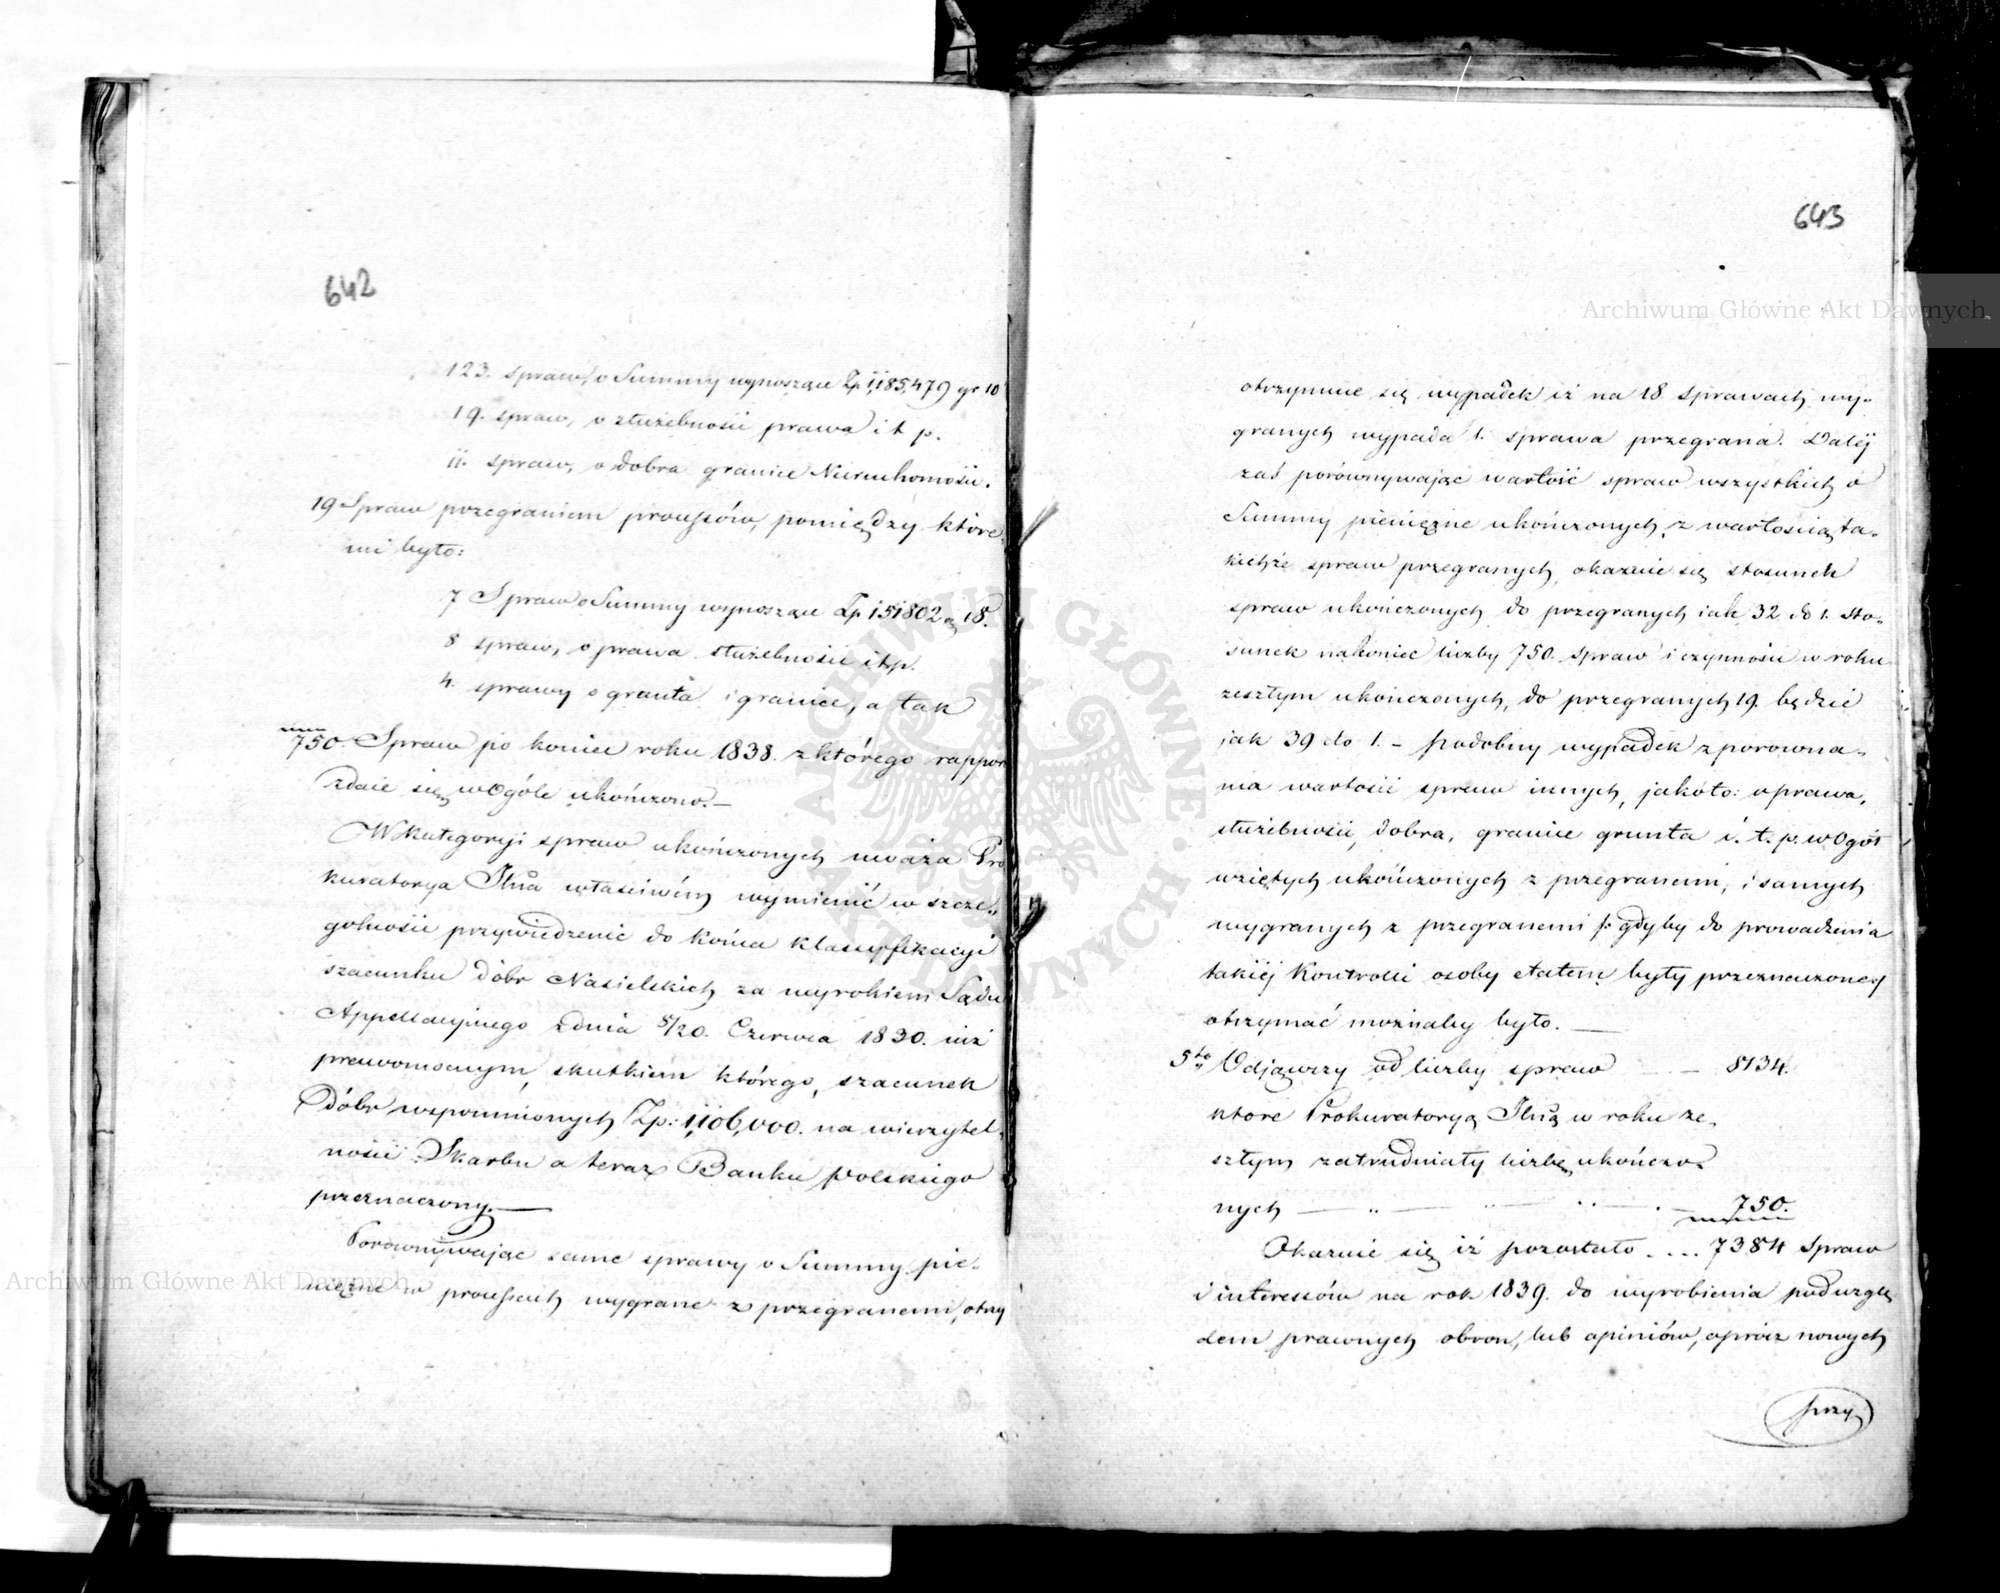 642
123. spraw, o Summy wynoszące Zp 1,185,479 gr 10
19. spraw, o służebności prawa i t p.
11. spraw, o dobra granice Nieruchomości.
19 Spraw przegraniem processów, pomiędzy które
mi było:
7 Spraw o Summy wynoszące Zp 151802 g 18.
8 spraw, o prawa służebności itp.
4. sprawy o grunta i granice, a tak
750. Spraw po koniec roku 1838. z którego rappor
zdaie się, wogóle ukończono.—
W kategoryi spraw ukończonych uważa Pro
kuratorya Jlna właściwém wymienić w szcze„
gólności przywiedzenie do końca klassyfikacyi
szacunku dóbr Nasielskich za wyrokiem Sądu
Appellacyinego z dnia 8/20. Czerwca 1830. iuż
prawomocnym, skutkiem którego, szacunek
Dóbr wspomnionych Zp: 1,106,000. na wierzytel„
ności Skarbu a teraz Banku polskiego
przeznaczony.—
Porównywając same sprawy o Summy pie„
niężne w processach wygrane z przegranemi, otrzy
643
otrzymuie się wypadek iż na 18. sprawach wy„
granych wypada 1. sprawa przegrana. Daléj
zaś porównywając wartość spraw wszystkich o
Summy pieniężne ukończonych, z wartością ta„
kichże spraw przegranych, okazuie się stosunek
spraw ukończonych do przegranych iak 32 do 1. Sto„
sunek nakoniec liczby 750. spraw i czynności w roku
zeszłym ukończonych, do przegranych 19. będzie
jak 39 do 1. – podobny wypadek z porowna„
nia wartości spraw innych, jakoto: o prawa,
służebności, dobra, granice grunta i. t. p. w Ogół
wziętych ukończonych z przegranemi, i samych
wygranych z przegranemi /: gdyby do prowadzenia
takiéj Kontrolli osoby etatem były przeznaczone :/
otrzymać możnaby było. —
5to Odjąwszy od liczby spraw — — 8134.
które Prokuratoryą Jlną w roku ze„
szłym zatrudniały liczbę ukończo„
nych — „ — „ — „ — 750.
Okazuie się iż pozostało .... 7384 Spraw
i interessów na rok 1839. do wyrobienia pod wzglę
dem prawnych obron, lub opiniów, oprócz nowych
przy
Archiwum Główne Akt Dawnych
Archiwum Główne Akt Dawnych
ARCHIWUM GŁÓWNE AKT DAWNYCH